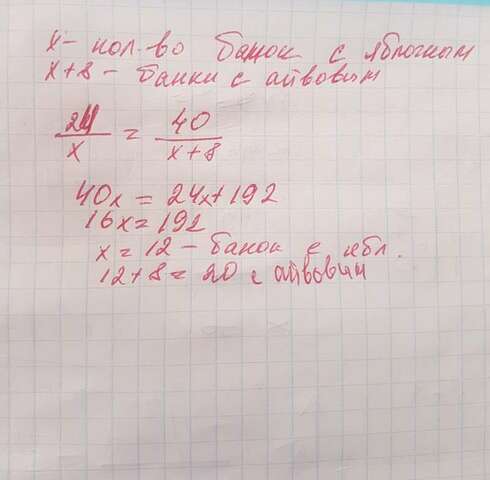 x - кол-во банок с яблочным
x+8 - банки с айвовым
24/x = 40/x+8
40x = 24x+192
16x = 192
x = 12 - банок с ябл.
12+8 = 20 с айвовым